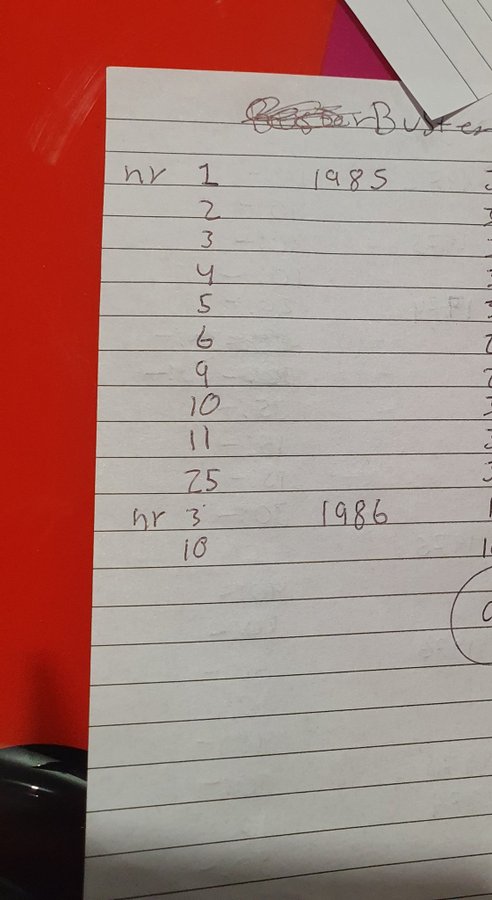 Buster
nr 1 1985
2
3
4
5
6
9
10
11
25
nr 3 1986
10